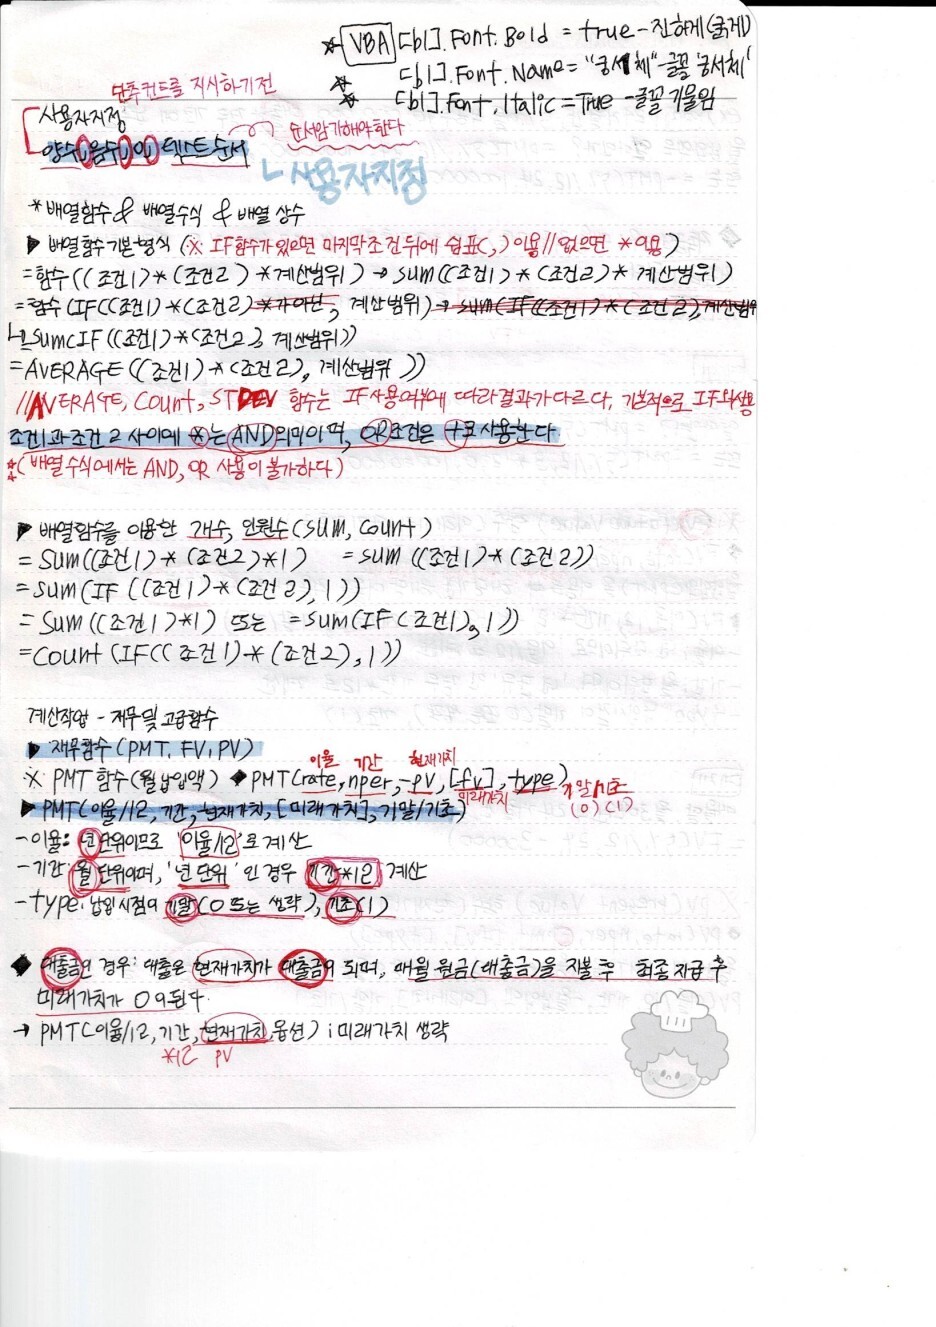 VBA [b1].Font.Bold = true -진하게(굵게)
[b1].Font.Name = "궁서체" - 글꼴 '궁서체'
[b1].Font.Italic = True - 글꼴 기울임
단추컨트롤 지시하기전
사용자지정
양수;음수;0;텍스트순서
순서암기해야한다
ㄴ사용자지정
*배열함수 & 배열수식 & 배열 상수
▶ 배열함수 기본형식 (※ IF함수가 있으면 마지막조건뒤에 쉼표(,) 이용// 없으면 *이용)
=함수((조건1)*(조건2)*계산범위1) → sum((조건1)*(조건2)* 계산범위1)
=함수(IF((조건1)*(조건2), 계산범위) → sum(IF((조건1)*(조건2), 계산범위
ㄴ=sum(IF((조건1)*(조건2), 계산범위))
=AVERAGE((조건1)*(조건2), 계산범위))
//AVERAGE, Count, STDEV 함수는 IF사용여부에 따라결과가다르다. 기본적으로 IF와사용
조건1과조건2 사이에 *는 AND의미이며, OR조건은 +로 사용한다
(배열수식에서는 AND, OR 사용이 불가하다)
▶ 배열함수를 이용한 개수, 인원수(sum, Count)
= Sum((조건1)*(조건2)*1) =sum((조건1)*(조건2))
=sum(IF((조건1)*(조건2),1))
= Sum((조건1)*1) 또는 =sum(IF(조건1),1))
=Count(IF((조건1)*(조건2),1))
계산작업 - 재무및고급함수
▶ 재무함수(PMT, FV, PV)
이율 기간 현재가치
※ PMT 함수(월납입액) ◆PMT(rate, nper, -pv, [fv], type)
미래가치 기말/기초
(0) (1)
▶PMT(이율/12, 기간, -현재가치, [미래가치], 기말/기초)
-이율: 년단위이므로 '이율/12'로 계산
-기간: 월단위이며, '년단위'인 경우 기간*12 계산
-type: 납입시점이 기말(0 또는 생략), 기초(1)
◆ 대출금인 경우: 대출은 현재가치가 대출금이 되며, 매월 원금(대출금)을 지불 후 최종 지급 후
미래가치가 0이된다.
→ PMT(이율/12, 기간, -현재가치, 옵션) ; 미래가치 생략
*12 PV